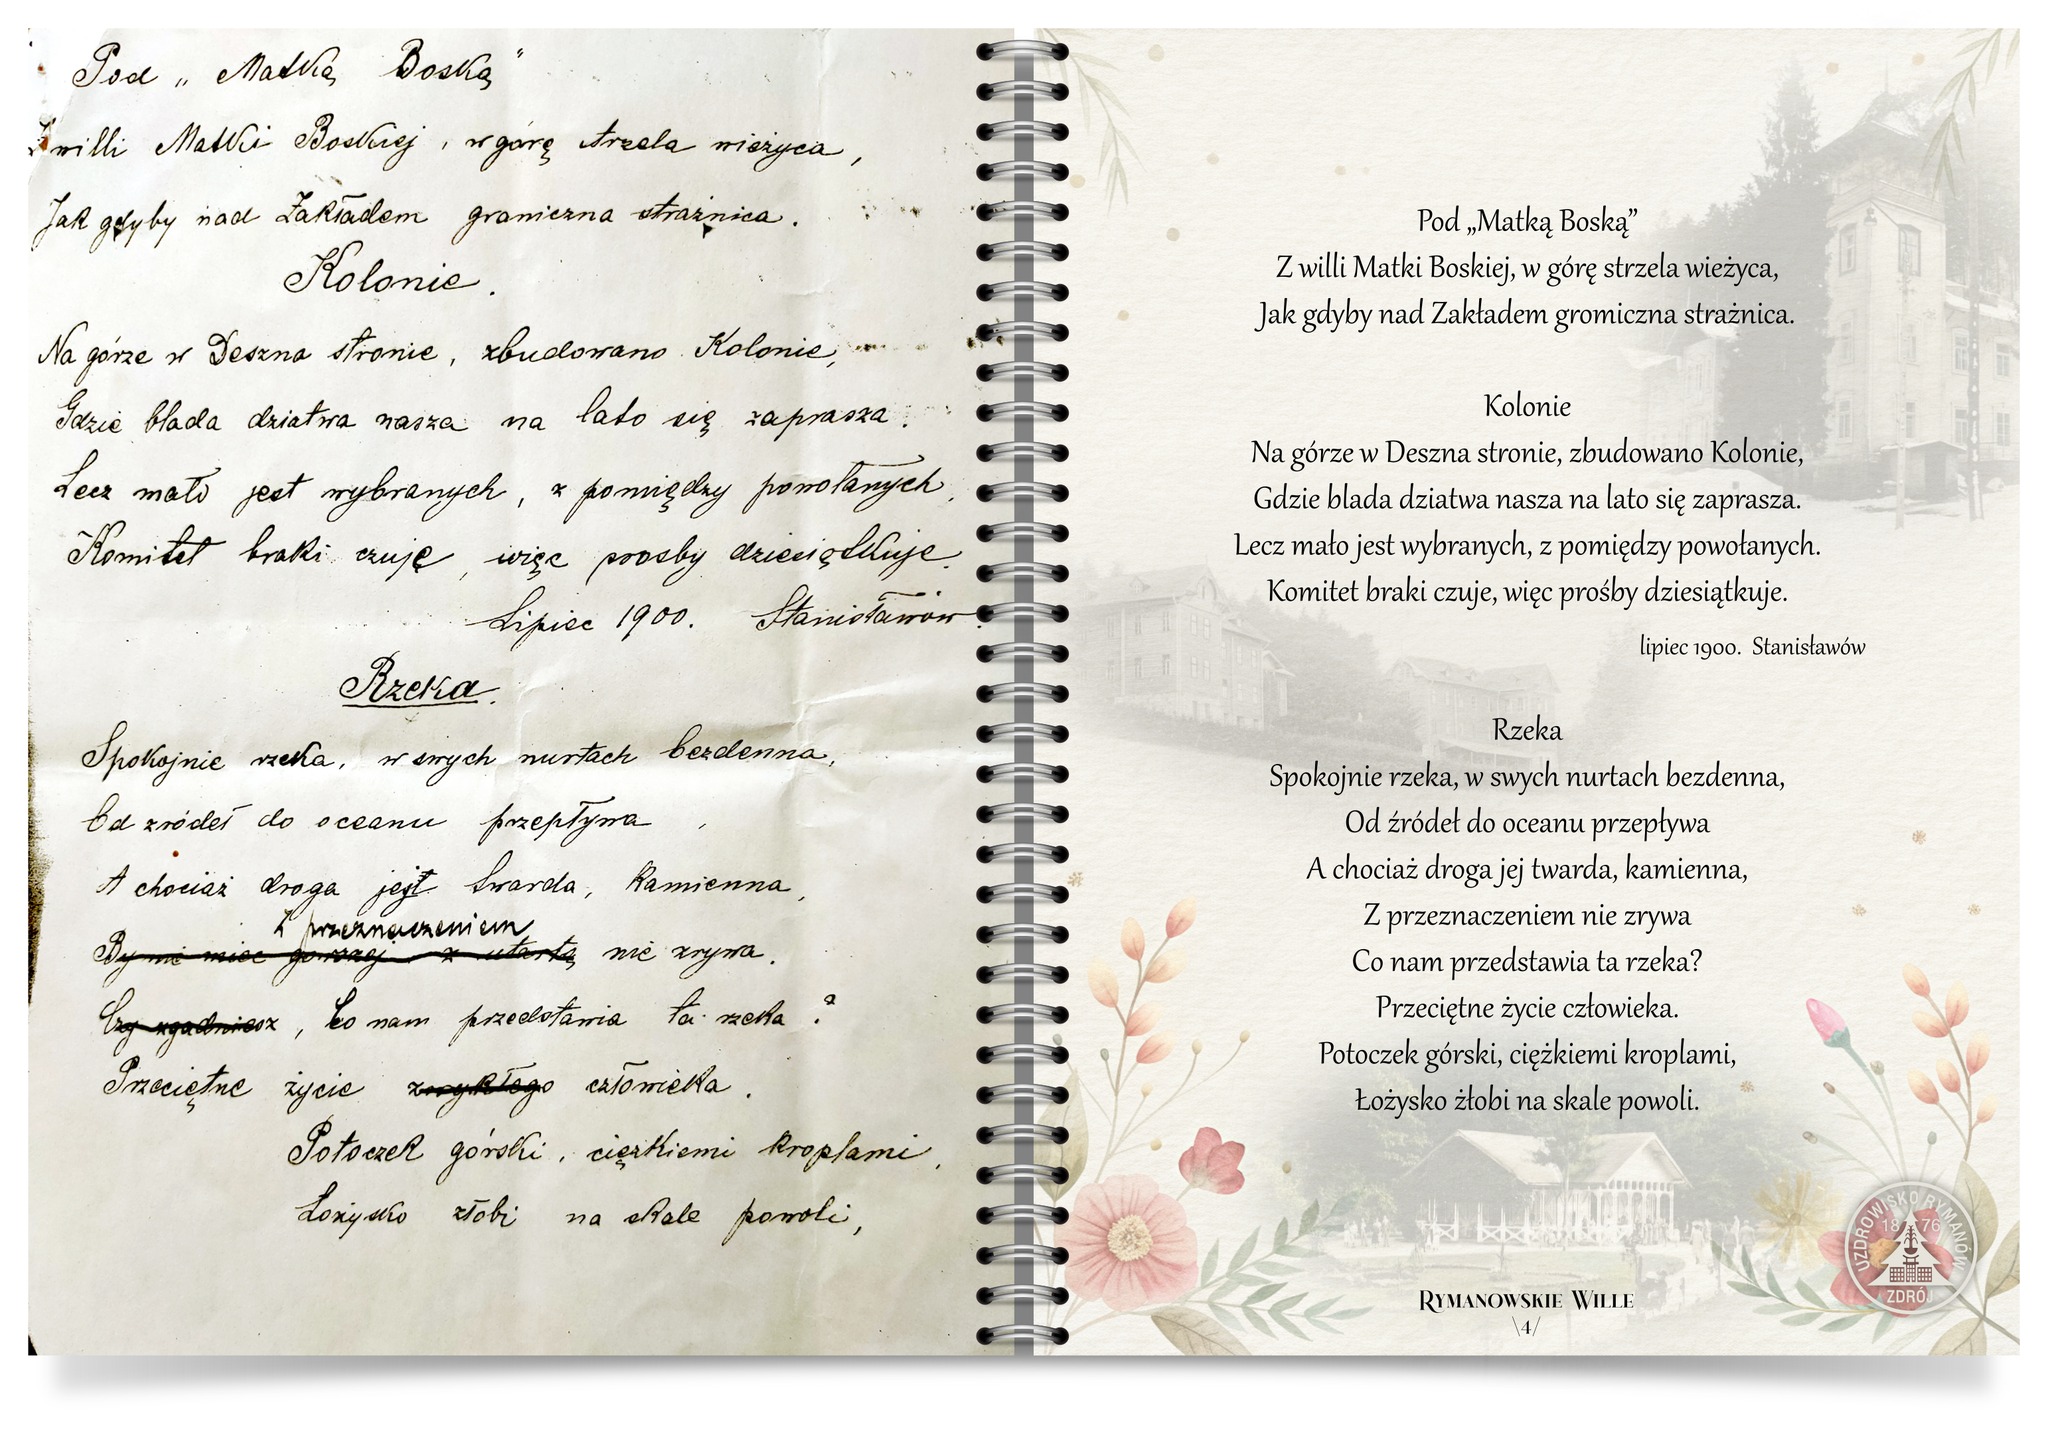 Pod „Matką Boską"
Z willi Matki Boskiej, w górę strzela wieżyca,
Jak gdyby nad Zakładem graniczna strażnica.
Kolonie.
Na górze w Deszna stronie, zbudowano Kolonie,
Gdzie blada dziatwa nasza na lato się zaprasza.
Lecz mało jest wybranych, z pomiędzy powołanych.
Komitet braki czuję, więc prosby dziesiątkuje.
Lipiec 1900. Stanisławów
Rzeka.
Spokojnie rzeka, w swych nurtach bezdenna,
Od zródeł do oceanu przepływa,
A chociaż droga jest twarda, kamienna,
Z przeznaczeniem
By nie mieć gorszej z utartą nie zrywa.
Czy zgadniesz, Co nam przedstawia ta rzeka?
Przeciętne życie zwykłego człowieka.
Potoczek górski, ciężkiemi kroplami,
Łożysko złobi na skale powoli,
Pod „Matką Boską”
Z willi Matki Boskiej, w górę strzela wieżyca,
Jak gdyby nad Zakładem gromiczna strażnica.
Kolonie
Na górze w Deszna stronie, zbudowano Kolonie,
Gdzie blada dziatwa nasza na lato się zaprasza.
Lecz mało jest wybranych, z pomiędzy powołanych.
Komitet braki czuje, więc prośby dziesiątkuje.
lipiec 1900. Stanisławów
Rzeka
Spokojnie rzeka, w swych nurtach bezdenna,
Od źródeł do oceanu przepływa
A chociaż droga jej twarda, kamienna,
Z przeznaczeniem nie zrywa
Co nam przedstawia ta rzeka?
Przeciętne życie człowieka.
Potoczek górski, ciężkiemi kroplami,
Łożysko żłobi na skale powoli.
Rymanowskie Wille
\4/
UZDROWISKO RYMANÓW
1876
ZDRÓJ